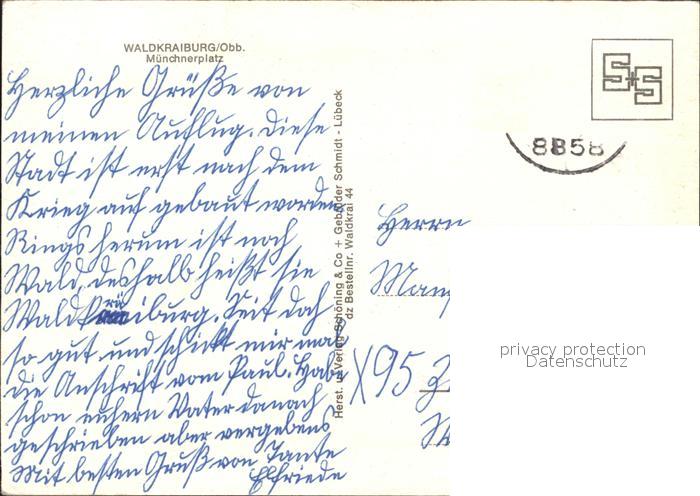 WALDKRAIBURG/Obb.
Münchnerplatz
Herzliche Grüße von
meinen Ausflug. Diese
Stadt ist erst nach dem
Krieg auf gebaut worden
Rings herum ist noch
Wald, deshalb heißt sie
Waldkraiburg. Seit doch
so gut und schickt mir mal
die Anschrift vom Paul. Habe
schon euhern Vater danach
geschrieben aber vergebens
Mit besten Gruß von Tante
Elfriede
Herst. u. Verlag Schöning & Co + Gebrüder Schmidt - Lübeck
dz Bestellnr. Waldkrai 44
S+S
8858
Herrn
X95
privacy protection
Datenschutz